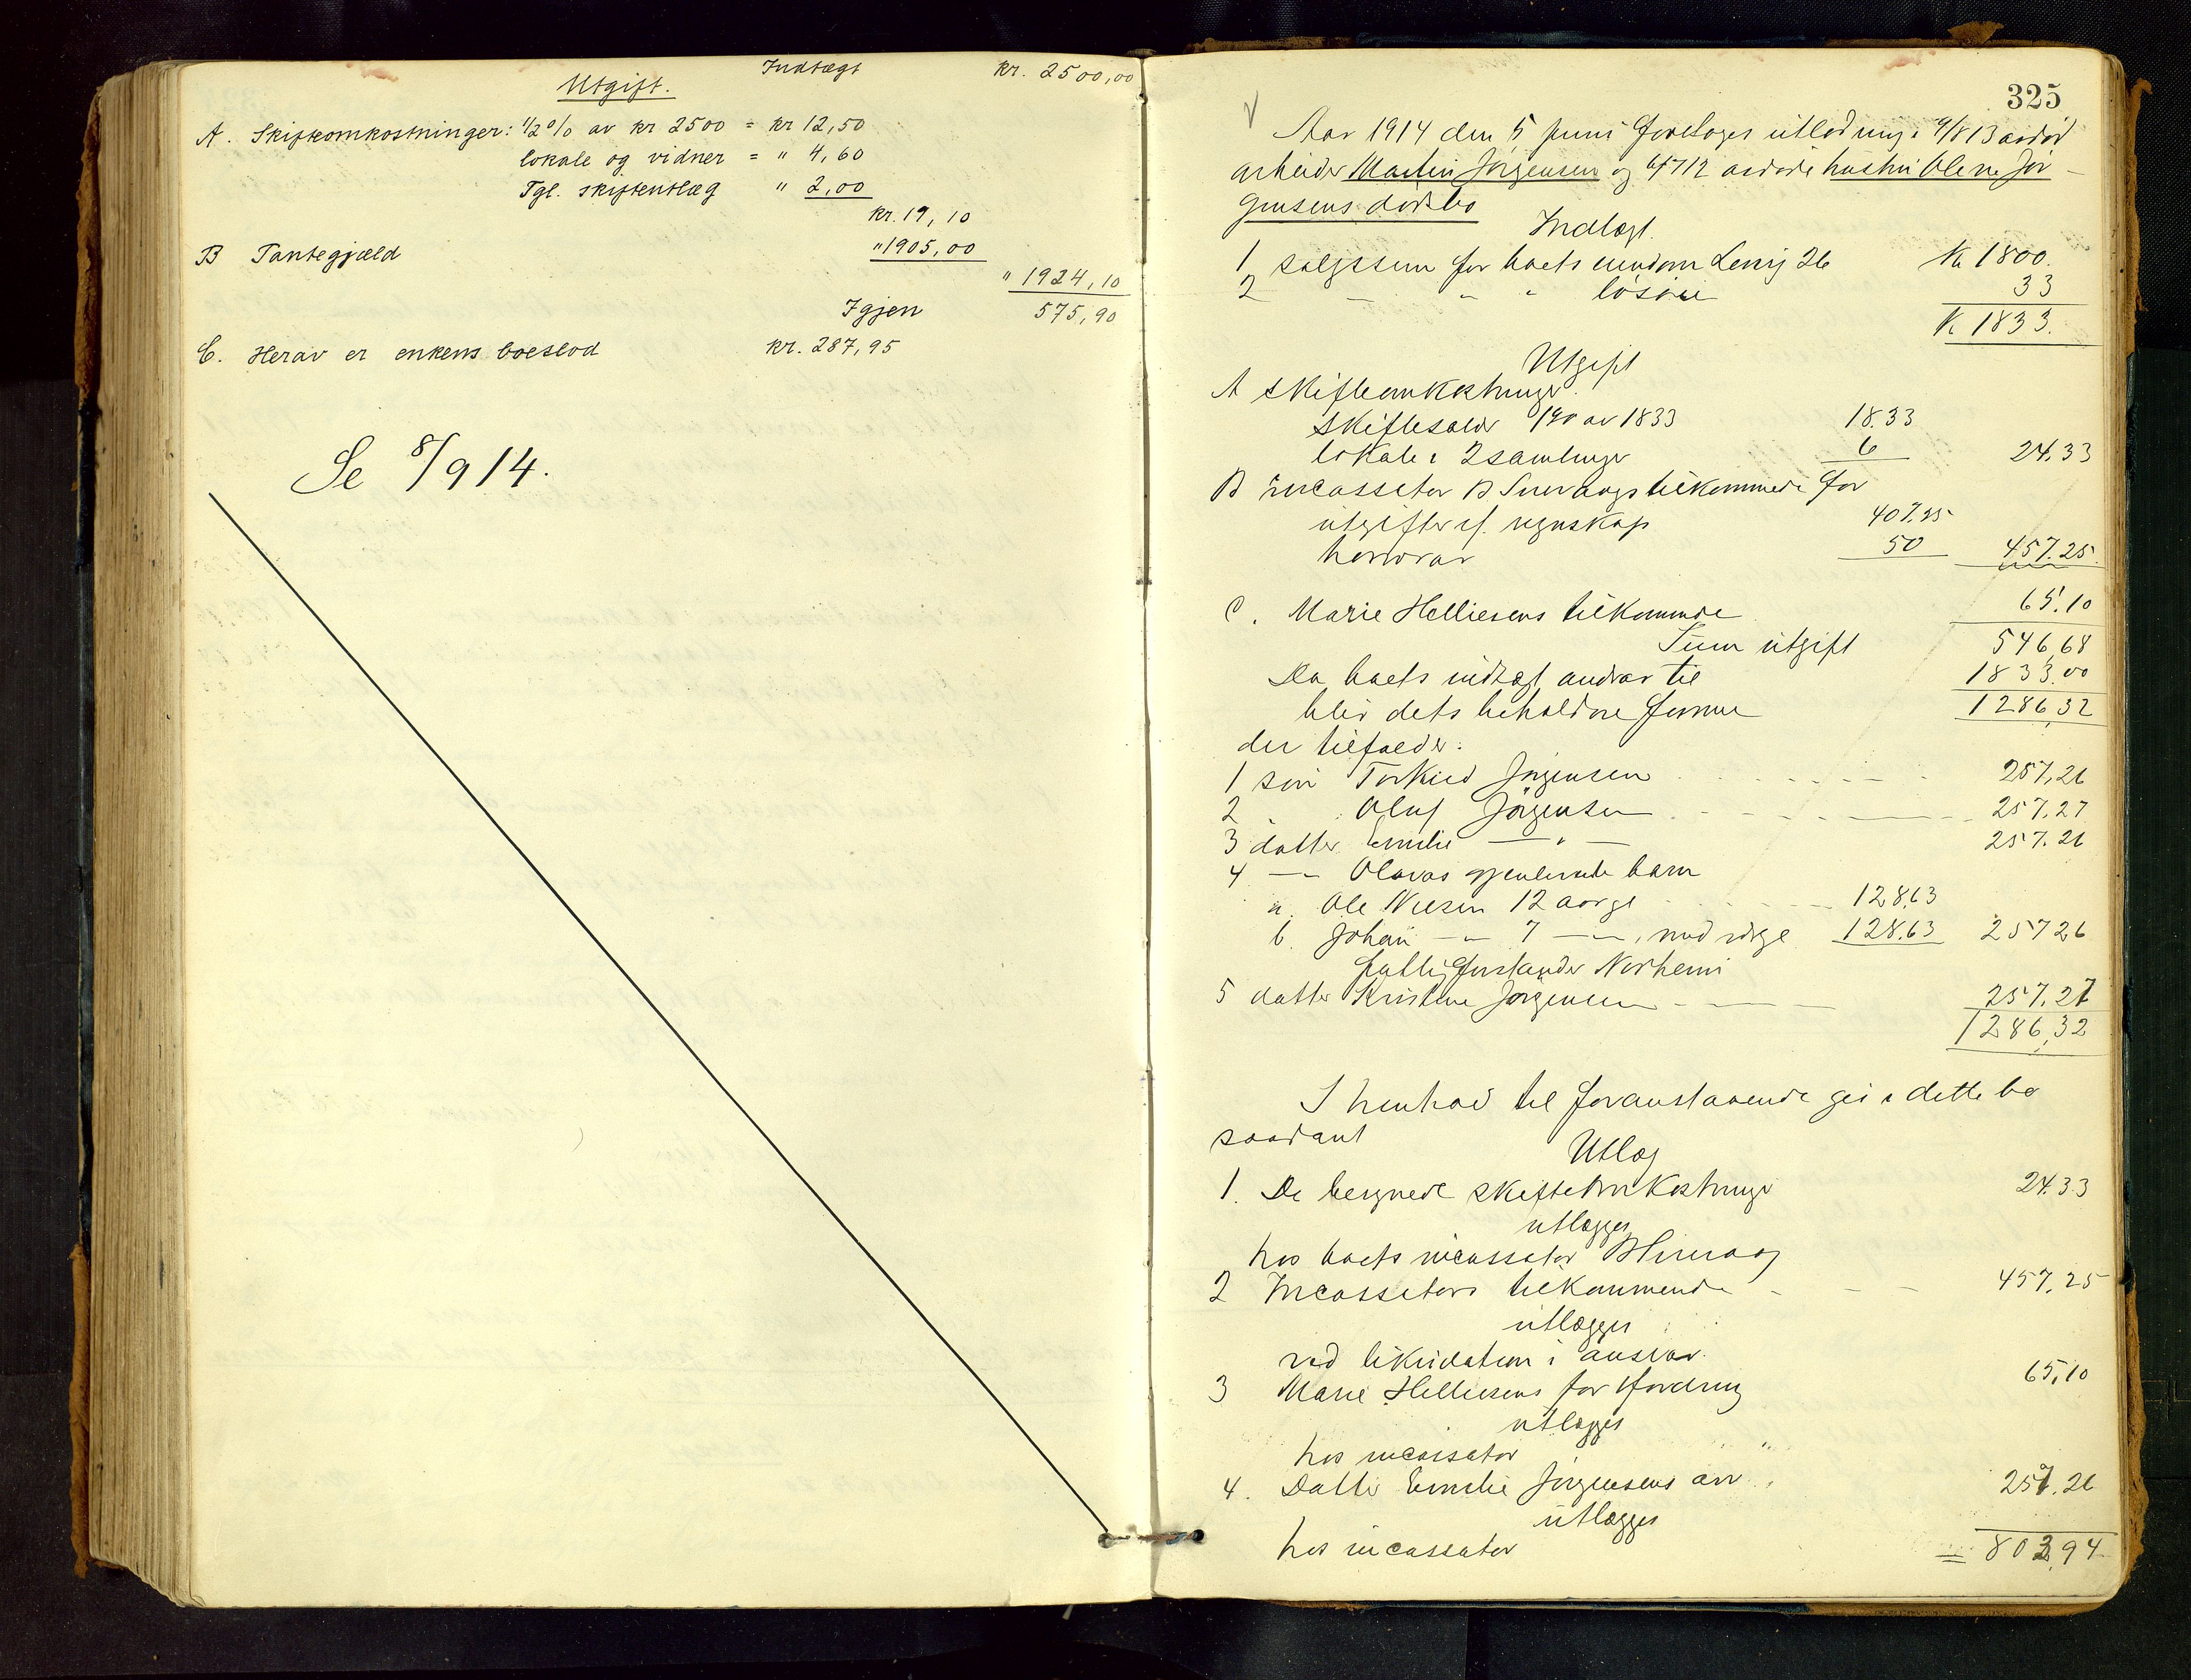 Indtægt kr. 2500,00
Utgift.
A. Skifteomkostninger: 1/2 % av kr 2500 = kr 12,50
lokale og vidner = " 4,60
Tgl. skifteutlæg " 2,00
kr. 19,10
B Pantegjæld "1905,00
" 1924,10
Igjen 575,90
C. Herav er enkens boeslod kr. 287,95
Se 8/9 14.
325
Aar 1914 den 5 juni foretoges utlodning i 9/8 13 avdød
arbeider Martin Jörgensen og 6/7 12 avdøde hustru Olene Jör-
gensens dødsbo
Indtægt
1 salgssum for boets eiendom 26 Kr 1800.
2 - - " løsöre 33
K 1833.
Utgift
A skifteomkostninger
skiftesalær 1% av 1833 18.33
lokale i 2 samlinger 6 24.33
B incassator B tilkommende for
utgifter if. regnskap 407.25
honorar 50 457.25
C. Marie Helliesens tilkommende 65.10
Sum utgift 546,68
Da boets indtægt andrar til 1833.00
blir dets beholdne formue 1286,32
der tilfalder:
1 søn Torkild Jörgensen 257,26
2 " Oluf Jörgensen 257.27
3 datter Emilie — " — 257.26
4 — " Olavas gjenlevende barn
a. Ole Nilsen 12 aar gl 128,63
b. Johan — " 7 — " —, med værge 128.63 257 26
fattigforstander Norheim
5 datter Kristine Jörgensen 257.27
1286,32
I henhold til foranstaaende gis i dette bo
saadant
Utlæg
1. De beregnede skifteomkostninger 24.33
utlægges
hos boets incassator B
2 Incassators tilkommende 457,25
utlægges
ved likvidation i ansvar.
3 Marie Helliesens for fordring 65,10
utlægges
hos incassator
4. Datter Emilie Jörgensens arv 257.26
utlægges
hos incassator = 803,94